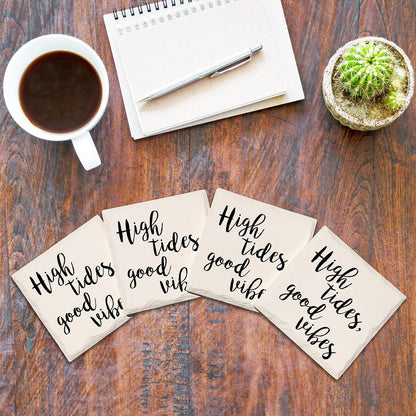 High
tides
good
vibes
High
tides
good
vibes
High
tides
good
vibes
High
tides,
good
vibes